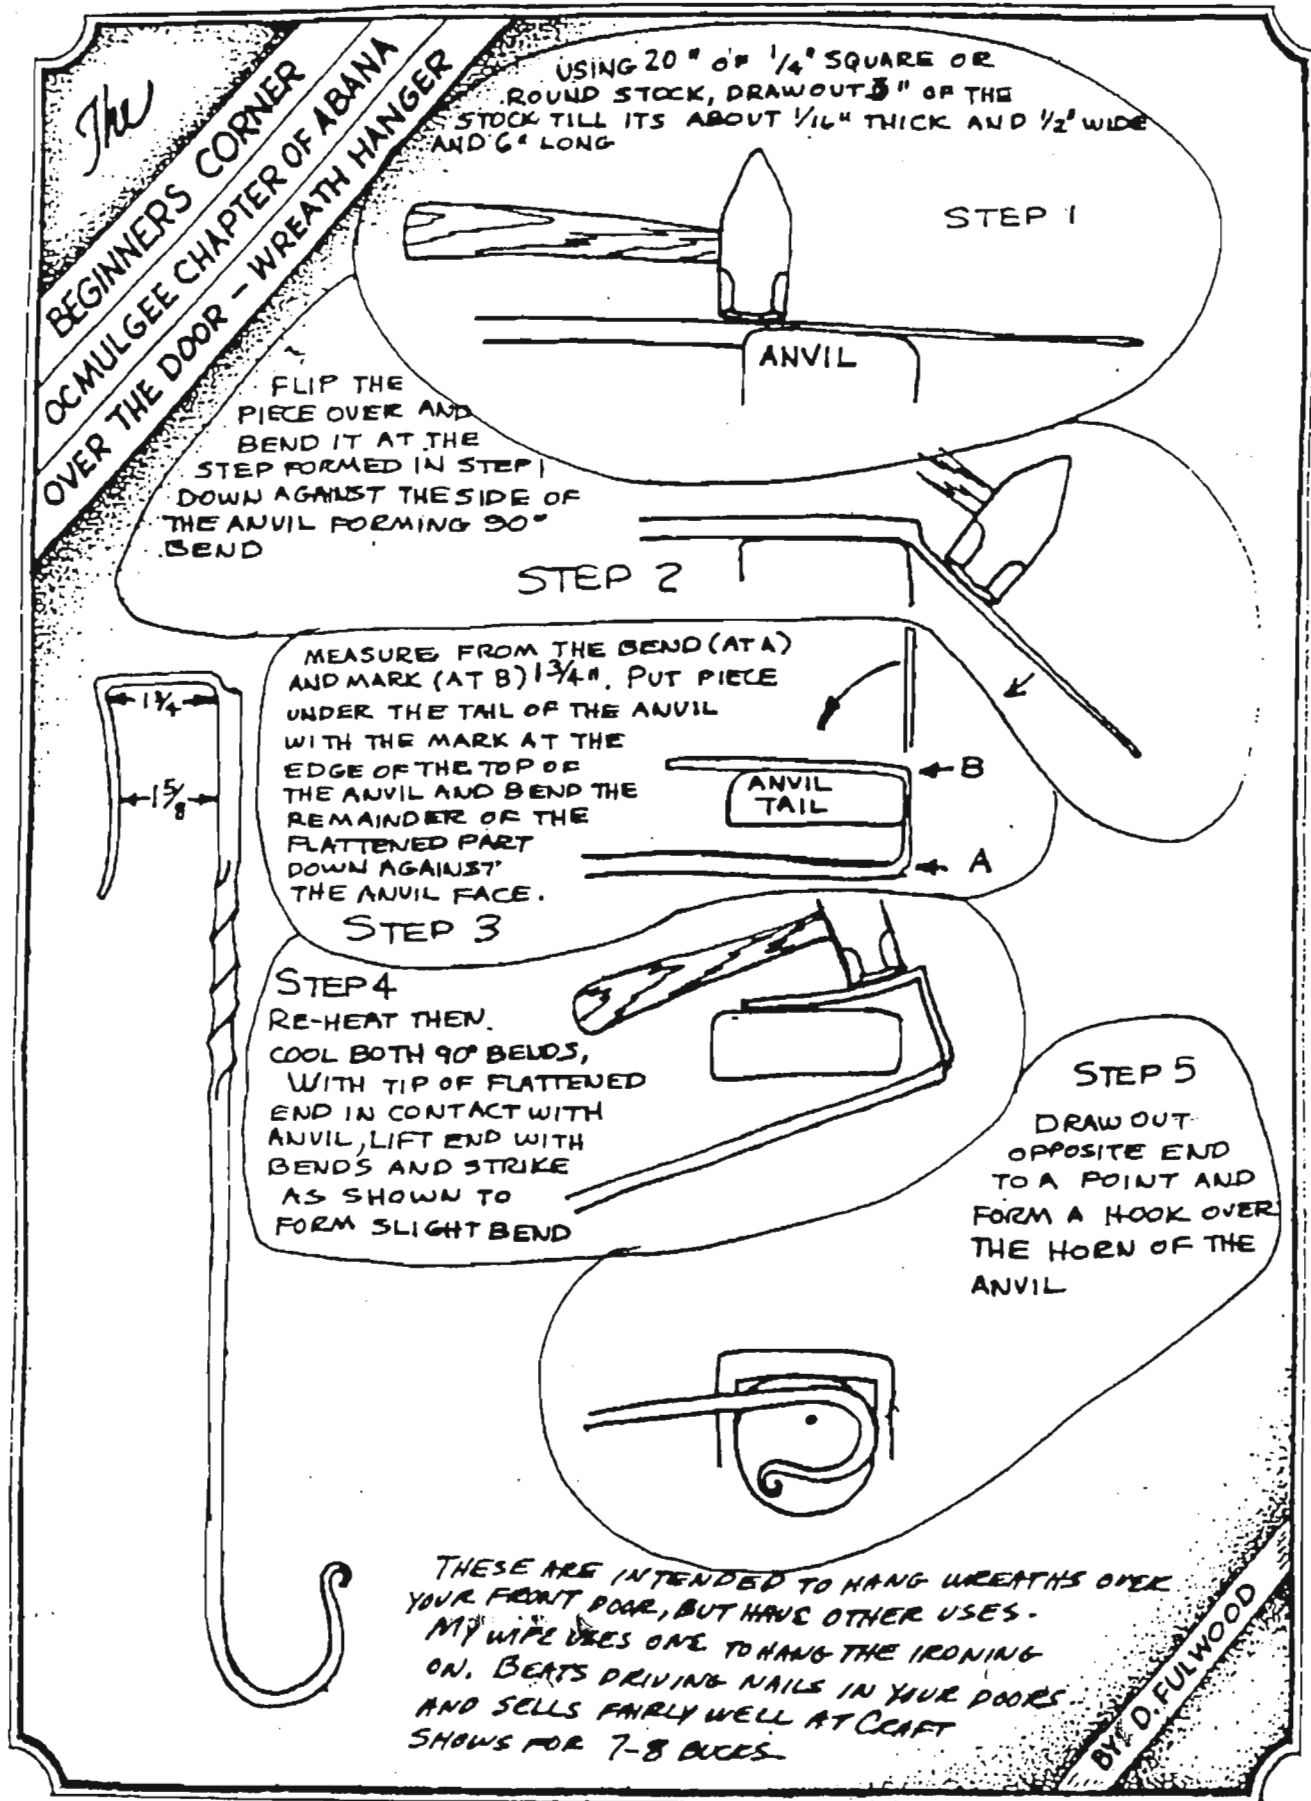 The
BEGINNERS CORNER
OCMULGEE CHAPTER OF ABANA
OVER THE DOOR - WREATH HANGER
USING 20" OF 1/4" SQUARE OR
ROUND STOCK, DRAWOUT 3" OF THE
STOCK TILL ITS ABOUT 1/16" THICK AND 1/2" WIDE
AND 6" LONG
STEP 1
ANVIL
FLIP THE
PIECE OVER AND
BEND IT AT THE
STEP FORMED IN STEP 1
DOWN AGAINST THE SIDE OF
THE ANVIL FORMING 90°
BEND
STEP 2
MEASURE FROM THE BEND (AT A)
AND MARK (AT B) 1 3/4". PUT PIECE
UNDER THE TAIL OF THE ANVIL
WITH THE MARK AT THE
EDGE OF THE TOP OF
THE ANVIL AND BEND THE
REMAINDER OF THE
FLATTENED PART
DOWN AGAINST
THE ANVIL FACE.
STEP 3
B
ANVIL
TAIL
A
1 3/4
1 5/8
STEP 4
RE-HEAT THEN.
COOL BOTH 90° BENDS,
WITH TIP OF FLATTENED
END IN CONTACT WITH
ANVIL, LIFT END WITH
BENDS AND STRIKE
AS SHOWN TO
FORM SLIGHT BEND
STEP 5
DRAW OUT
OPPOSITE END
TO A POINT AND
FORM A HOOK OVER
THE HORN OF THE
ANVIL
THESE ARE INTENDED TO HANG WREATHS OVER
YOUR FRONT DOOR, BUT HAVE OTHER USES.
MY WIFE USES ONE TO HANG THE IRONING
ON. BEATS DRIVING NAILS IN YOUR DOORS
AND SELLS FAIRLY WELL AT CRAFT
SHOWS FOR 7-8 BUCKS
BY D. FULWOOD